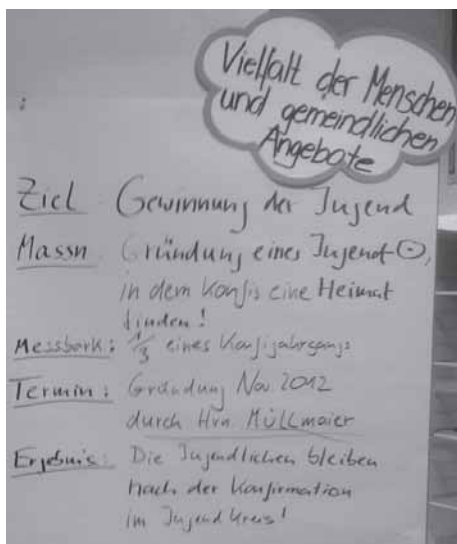 Vielfalt der Menschen
und gemeindlichen
Angebote
Ziel Gewinnung der Jugend
Massn Gründung eines Jugend⊙,
in dem Konfis eine Heimat
finden!
Messbark: 1/3 eines Konfijahrgangs
Termin: Gründung Nov. 2012
durch Hrn. Müllmaier
Ergebnis: Die Jugendlichen bleiben
nach der Konfirmation
im Jugendkreis!